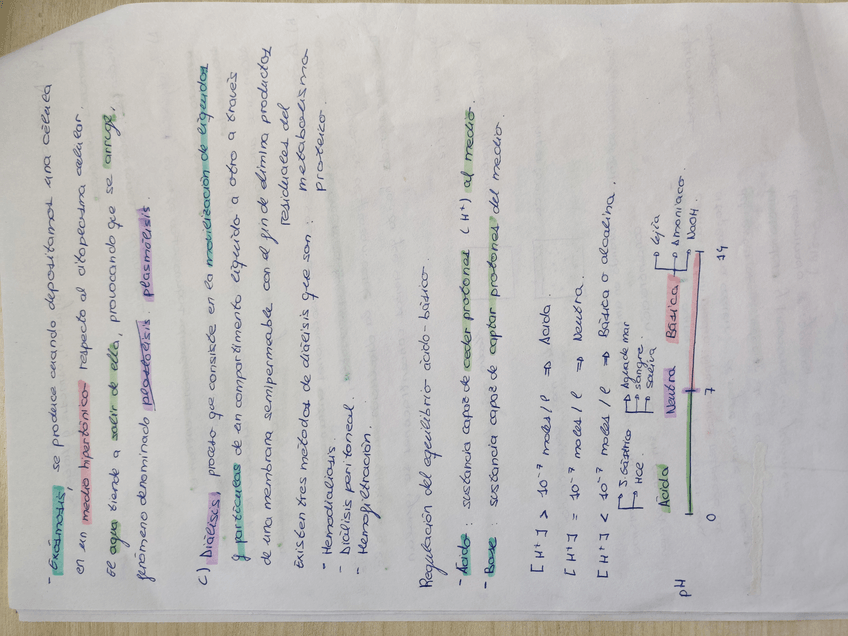 - Exósmosis, se produce cuando depositamos una célula
en un medio hipertónico respecto al citoplasma celular.
El agua tiende a salir de ella, provocando que se arruge,
fenómeno denominado plastólisis. plasmólisis.
c) Diálisis, proceso que consiste en la movilización de líquidos
y partículas de un compartimento líquido a otro a través
de una membrana semipermeable con el fin de elimina productos
residuales del
metabolismo
proteico.
Existen tres métodos de diálisis que son:
- Hemodialisis.
- Diálisis peritoneal.
- Hemofiltración.
Regulación del equilibrio ácido-básico.
- Ácido: sustancia capaz de ceder protones (H⁺) al medio.
- Base: sustancia capaz de captar protones del medio.
[H⁺] > 10⁻⁷ moles/l ⇒ Ácida.
[H⁺] = 10⁻⁷ moles/l ⇒ Neutra.
[H⁺] < 10⁻⁷ moles/l ⇒ Básica o alcalina.
J. Gástrico
HCl
Agua de mar
sangre.
saliva
Lejía
Amoníaco.
NaOH.
Ácida Neutra Básica
pH
0 7 14